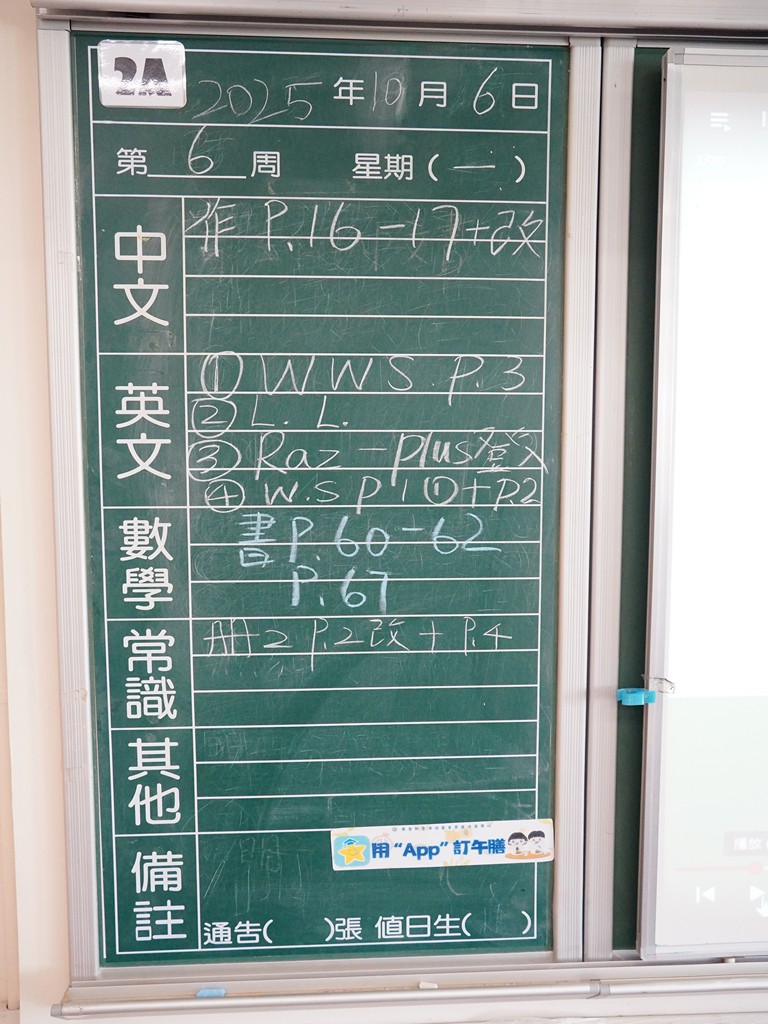 2A
2025年10月6日
第6周 星期(一)
中文
作 P.16-17+改
英文
① W W S. P.3
② L. L.
③ Raz-plus登入
④ W.S P1①+P.2
數學
書P.60-62
P.67
常識
冊2 P.2改+P.4
其他
備註
用“App”訂午膳
通告( )張 值日生( )